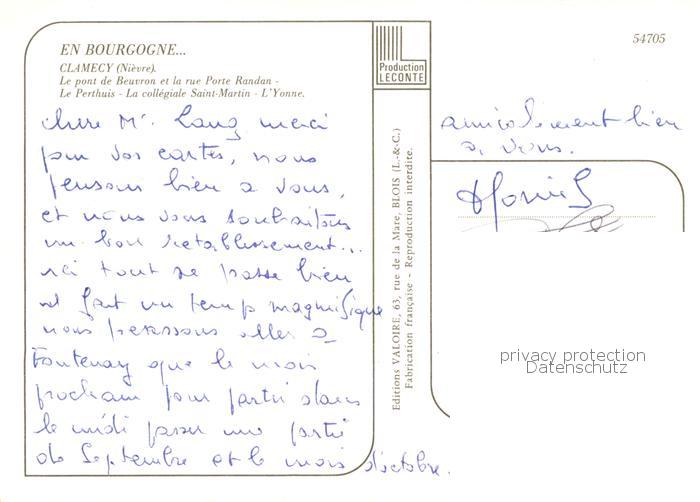 54705
EN BOURGOGNE...
CLAMECY (Nièvre).
Le pont de Beuvron et la rue Porte Randan -
Le Perthuis - La collégiale Saint-Martin - L'Yonne.
Production
LECONTE
Editions VALOIRE, 63, rue de la Mare, BLOIS (L.-&-C.)
Fabrication française - Reproduction interdite.
chère Me Lang merci
pour vos cartes, nous
pensons bien a vous,
et nous vous souhaitons
un bon retablissement...
ici tout se passe bien
il fait un temps magnifique
nous pensons aller a
Fontenay que le mois
prochain pour partir dans
le midi passer une partie
de Septembre et le mois d'octobre.
amicalement bien
a vous.
privacy protection
Datenschutz